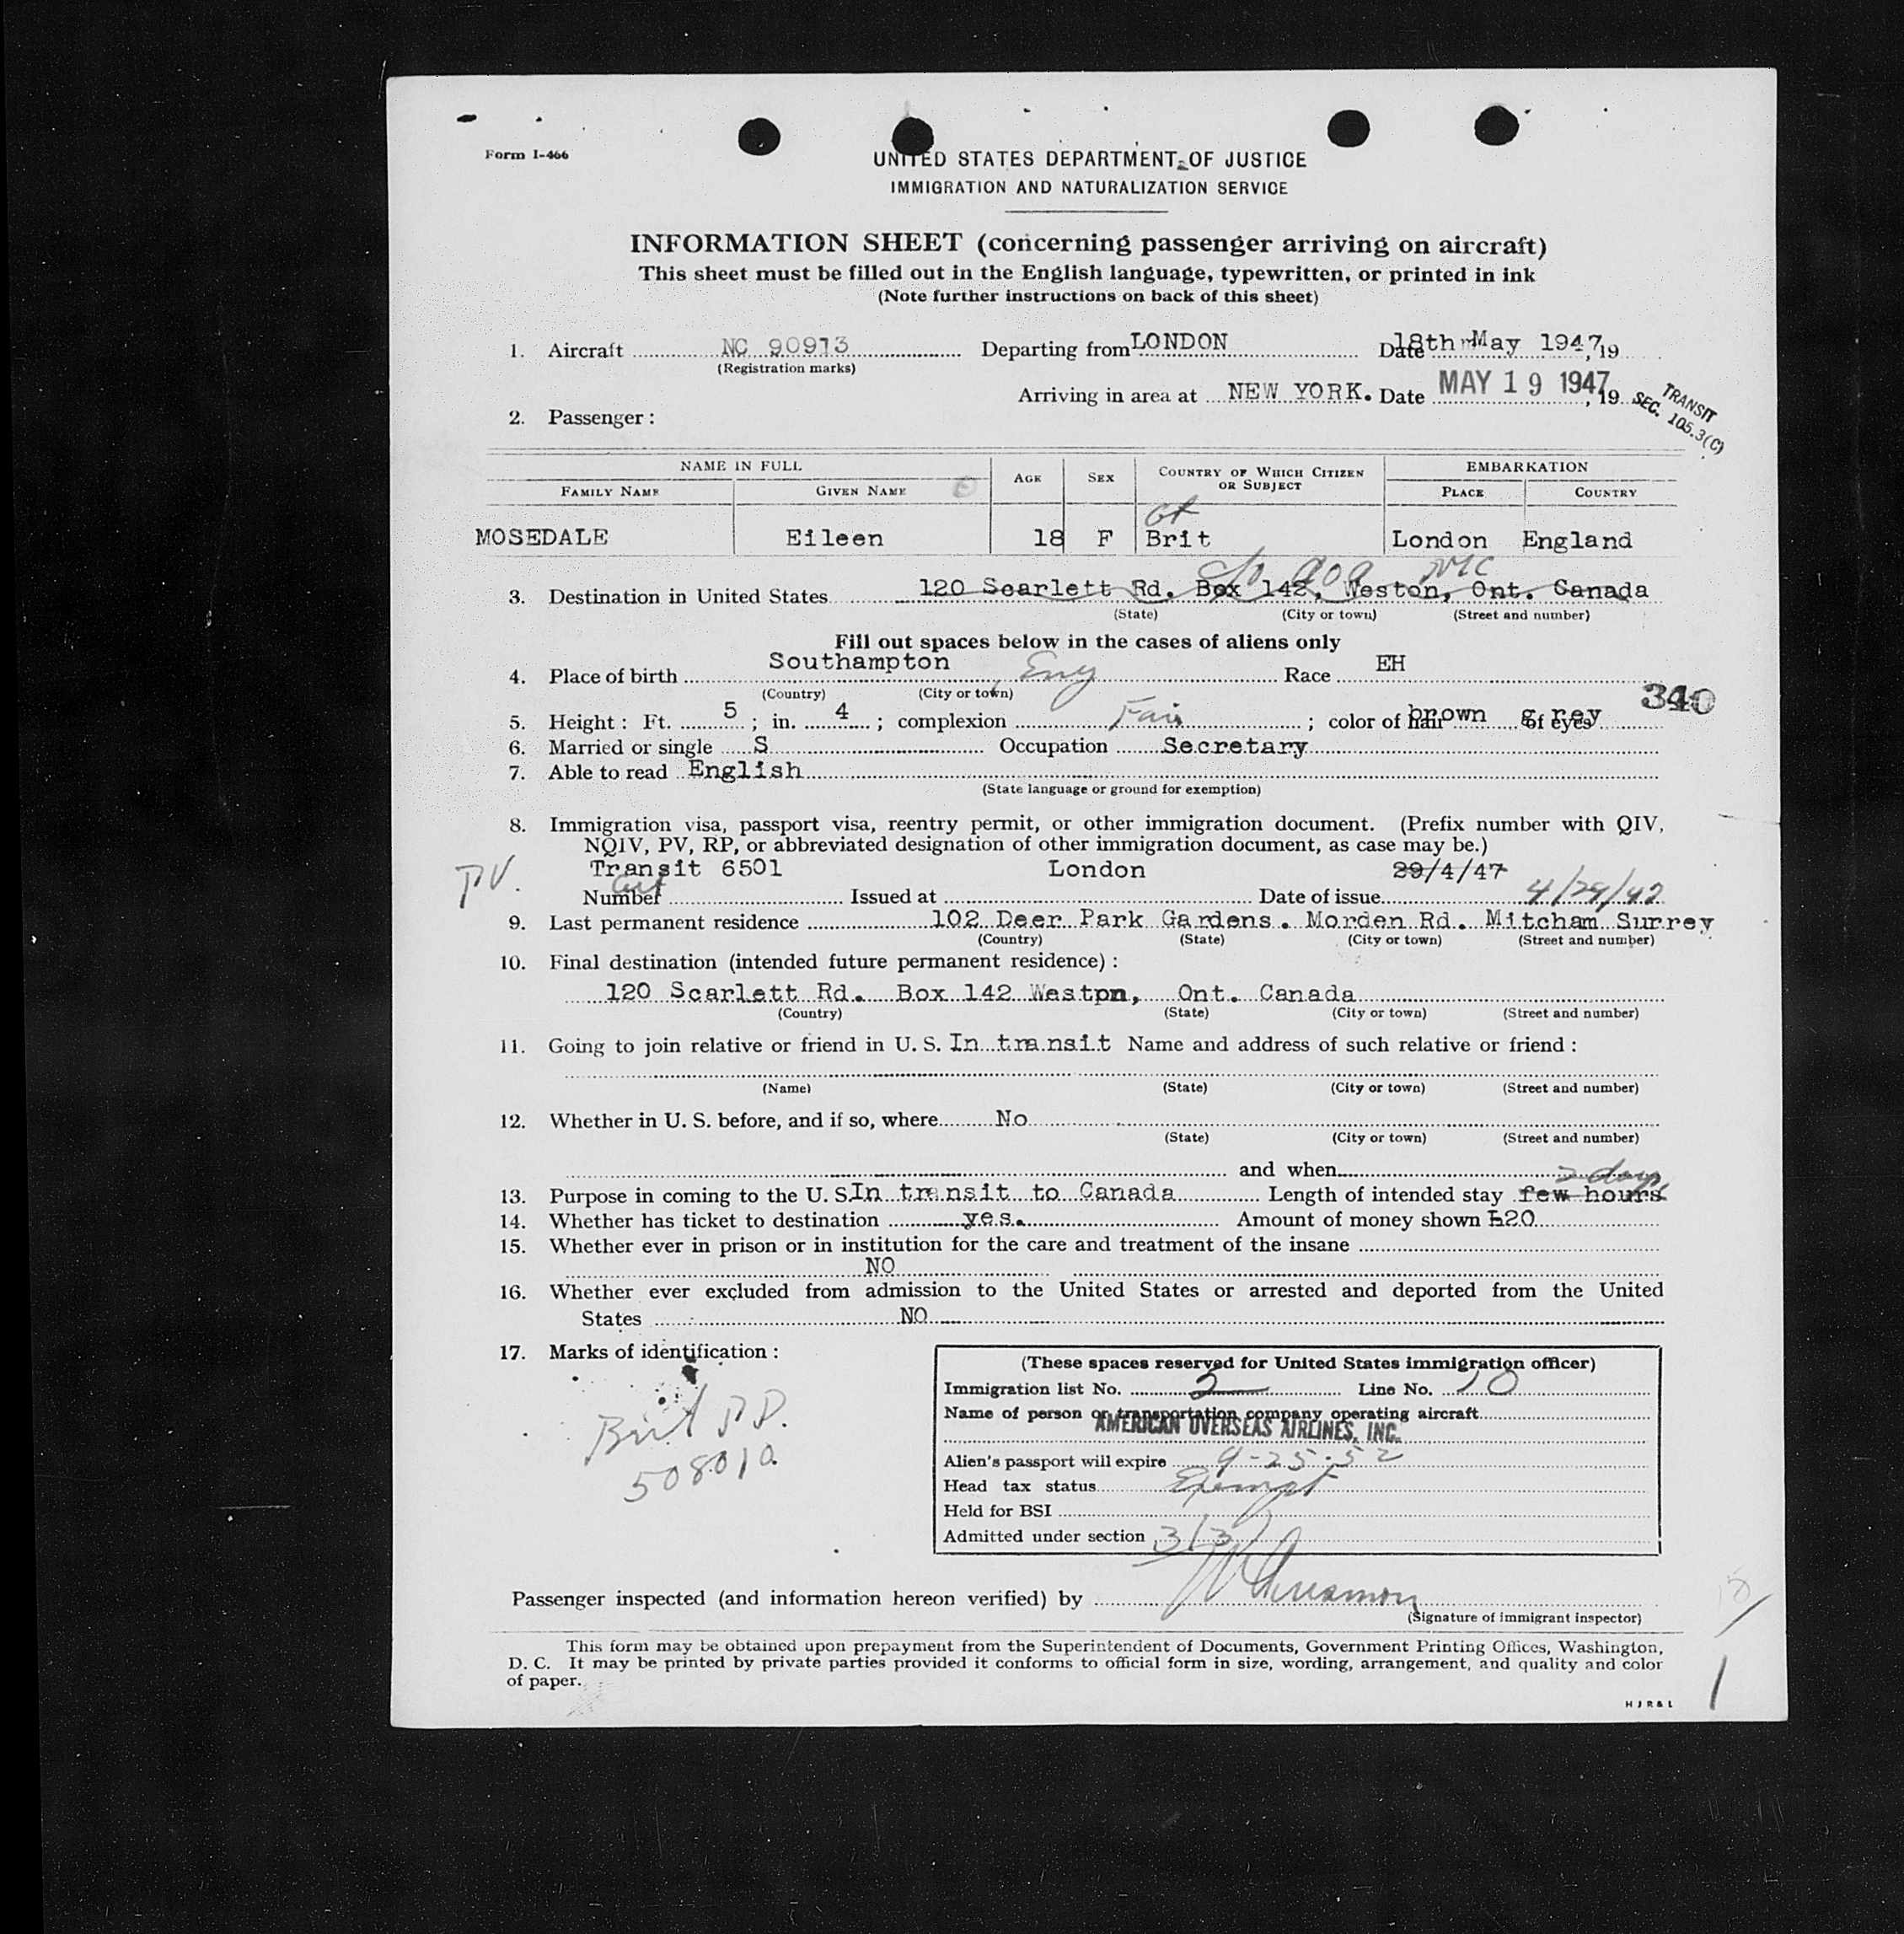 Form I-466
UNITED STATES DEPARTMENT OF JUSTICE
IMMIGRATION AND NATURALIZATION SERVICE
INFORMATION SHEET (concerning passenger arriving on aircraft)
This sheet must be filled out in the English language, typewritten, or printed in ink
(Note further instructions on back of this sheet)
1. Aircraft NC 90913 Departing from LONDON Date 18th May 1947, 19
(Registration marks)
Arriving in area at NEW YORK. Date MAY 19 1947, 19
TRANSIT
SEC. 105.3(C)
2. Passenger:
NAME IN FULL AGE SEX COUNTRY OF WHICH CITIZEN OR SUBJECT EMBARKATION
FAMILY NAME GIVEN NAME PLACE COUNTRY
Gt
MOSEDALE Eileen 18 F Brit London England
c/o AOA NYC
3. Destination in United States 120 Scarlett Rd. Box 142, Weston, Ont. Canada
(State) (City or town) (Street and number)
Fill out spaces below in the cases of aliens only
4. Place of birth Southampton Eng Race EH
(Country) (City or town)
340
5. Height: Ft. 5; in. 4; complexion Fair; color of hair brown of eyes grey
6. Married or single S Occupation Secretary
7. Able to read English
(State language or ground for exemption)
8. Immigration visa, passport visa, reentry permit, or other immigration document. (Prefix number with QIV,
NQIV, PV, RP, or abbreviated designation of other immigration document, as case may be.)
Transit 6501 London 29/4/47
PV. Number Issued at Date of issue 4/29/47
9. Last permanent residence 102 Deer Park Gardens. Morden Rd. Mitcham Surrey
(Country) (State) (City or town) (Street and number)
10. Final destination (intended future permanent residence):
120 Scarlett Rd. Box 142 Weston, Ont. Canada
(Country) (State) (City or town) (Street and number)
11. Going to join relative or friend in U. S. In transit Name and address of such relative or friend:
(Name) (State) (City or town) (Street and number)
12. Whether in U. S. before, and if so, where No
(State) (City or town) (Street and number)
and when
2 days
13. Purpose in coming to the U. S. In transit to Canada Length of intended stay few hours
14. Whether has ticket to destination yes. Amount of money shown £20
15. Whether ever in prison or in institution for the care and treatment of the insane
NO
16. Whether ever excluded from admission to the United States or arrested and deported from the United
States NO
17. Marks of identification:
Brit PP.
508010
(These spaces reserved for United States immigration officer)
Immigration list No. 2 Line No. 10
Name of person or transportation company operating aircraft
AMERICAN OVERSEAS AIRLINES, INC.
Alien's passport will expire 9-25-52
Head tax status Exempt
Held for BSI
Admitted under section 3(3)
Passenger inspected (and information hereon verified) by
(Signature of immigrant inspector)
This form may be obtained upon prepayment from the Superintendent of Documents, Government Printing Offices, Washington,
D. C. It may be printed by private parties provided it conforms to official form in size, wording, arrangement, and quality and color
of paper.
H J R & L